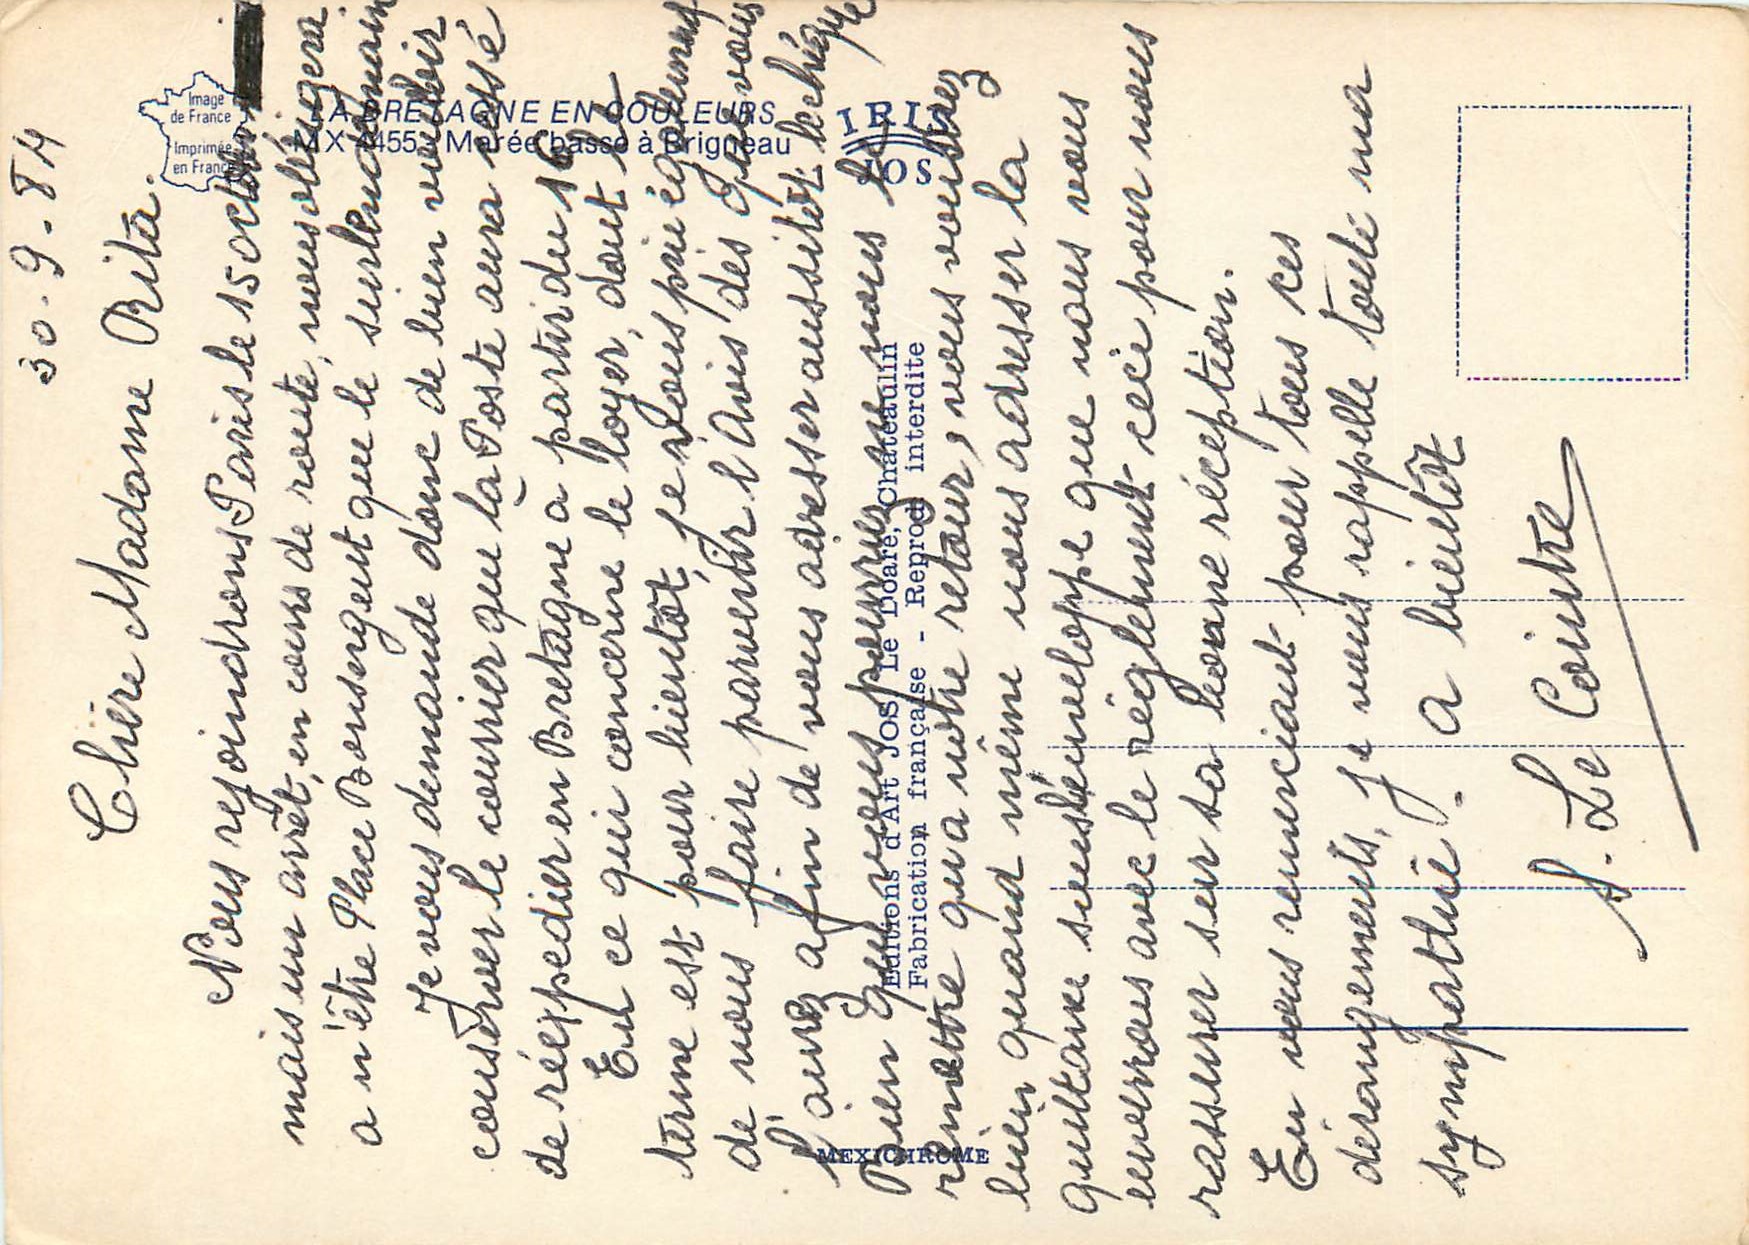 30-9-84
Chère Madame Rita.
Nous rejoindrons Paris le 15 Octobre
mais un arrêt, en cours de route, nous obligera
a n'être Place Bonsergent que le surlendemain
Je vous demande donc de bien vouloir
conserver le courrier que la Poste aura cessé
de réexpedier en Bretagne à partir du 16
En ce qui concerne le loyer, dont le
terme est pour bientôt, je vous prie également
de nous faire parvenir l'Avis dès que vous
l'aurez afin de vous adresser aussitôt le chèque
Bien que vous pourriez ne nous le
remettre qu'a notre retour, vous voudrez
bien quand même nous adresser la
quittance sous enveloppe que nous vous
enverrons avec le règlement ceci pour nous
rassurer sur sa bonne réception.
En vous remerciant pour tous ces
dérangements, je vous rappelle toute ma
sympathie. a bientôt
S. Le Cointre
Image
de France
Imprimée
en France
LA BRETAGNE EN COULEURS
MX 4455 Marée basse à Brigneau
IRIS
JOS
Editions d'Art JOS Le Doaré, Châteaulin
Fabrication française - Reprod. interdite
MEXICHROME